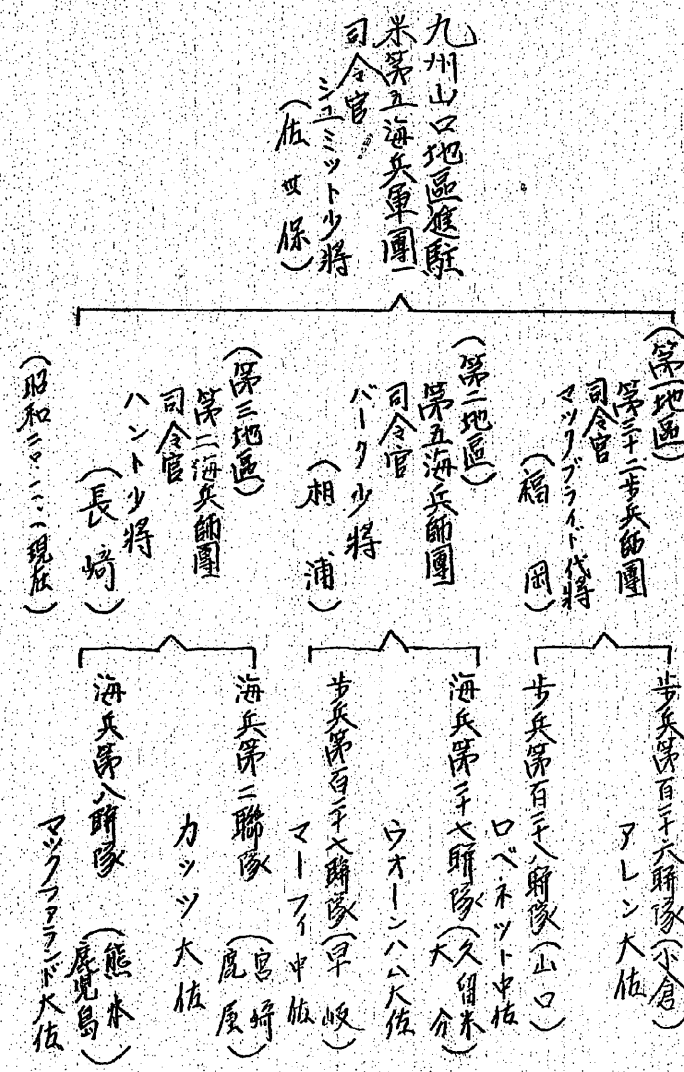 九州山口地區進駐
米第五海兵軍團
司令官
シユミット少將
(佐世保)
(第一地區)
第三十二步兵師團
司令官
マックブライド代將
(福岡)
步兵第百二十六聯隊(小倉)
アレン大佐
步兵第百二十八聯隊(山口)
ロベネット中佐
(第二地區)
第五海兵師團
司令官
バーク少將
(相浦)
海兵第二十七聯隊(久留米 大分)
ウオーンハム大佐
步兵第百二十七聯隊(早岐)
マーフィ中佐
(第三地區)
第二海兵師團
司令官
ハント少將
(長崎)
海兵第二聯隊(宮崎 鹿屋)
カッツ大佐
海兵第八聯隊(熊本 鹿児島)
マックファランド大佐
現在)